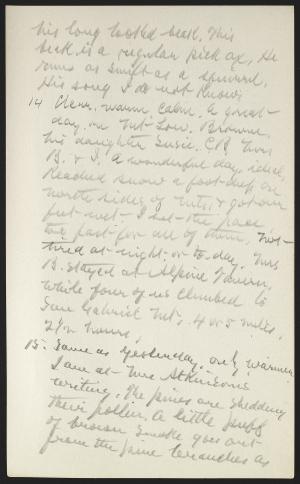 his long hooked beak. This
beak is a regular pick ax, He
runs as swift as a squirrel.
His song I do not know.
14 Clear, warm calm. A great
day on Mt Low. Browne,
his daughter Susie, C.B. Mrs
B. & I. A wonderful day, ideal,
Reached snow a foot deep on
north sides of Mts, & got our
feet wet. I set the pace,
too fast for all of them. Not
tired at night, or to-day. Mrs
B. stayed at Alpine Tavern,
while four of us climbed to
San Gabriel Mt, 4 or 5 miles,
2½ hours.
15. Same as yesterday, only warmer
I am at Mrs Atkinsons
writing, The pines are shedding
their pollen. A little puff
of brown smoke goes out
from the pine branches as